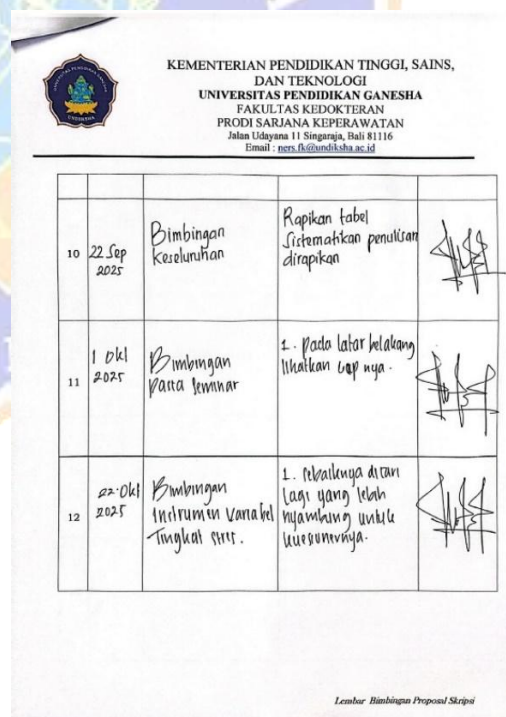 KEMENTERIAN PENDIDIKAN TINGGI, SAINS,
DAN TEKNOLOGI
UNIVERSITAS PENDIDIKAN GANESHA
FAKULTAS KEDOKTERAN
PRODI SARJANA KEPERAWATAN
Jalan Udayana 11 Singaraja, Bali 81116
Email : ners.fk@undiksha.ac.id
UNIVERSITAS PENDIDIKAN GANESHA
UNDIKSHA
10
22 Sep
2025
Bimbingan
Keseluruhan
Rapikan tabel
Sistematikan penulisan
dirapikan
11
1 Okt
2025
Bimbingan
Pasca Seminar
1. Pada latar belakang
lihatkan gap nya.
12
22 Okt
2025
Bimbingan
Instrumen Variabel
Tingkat stres.
1. Sebaiknya dicari
lagi yang lebih
nyambung untuk
kuesionernya.
Lembar Bimbingan Proposal Skripsi